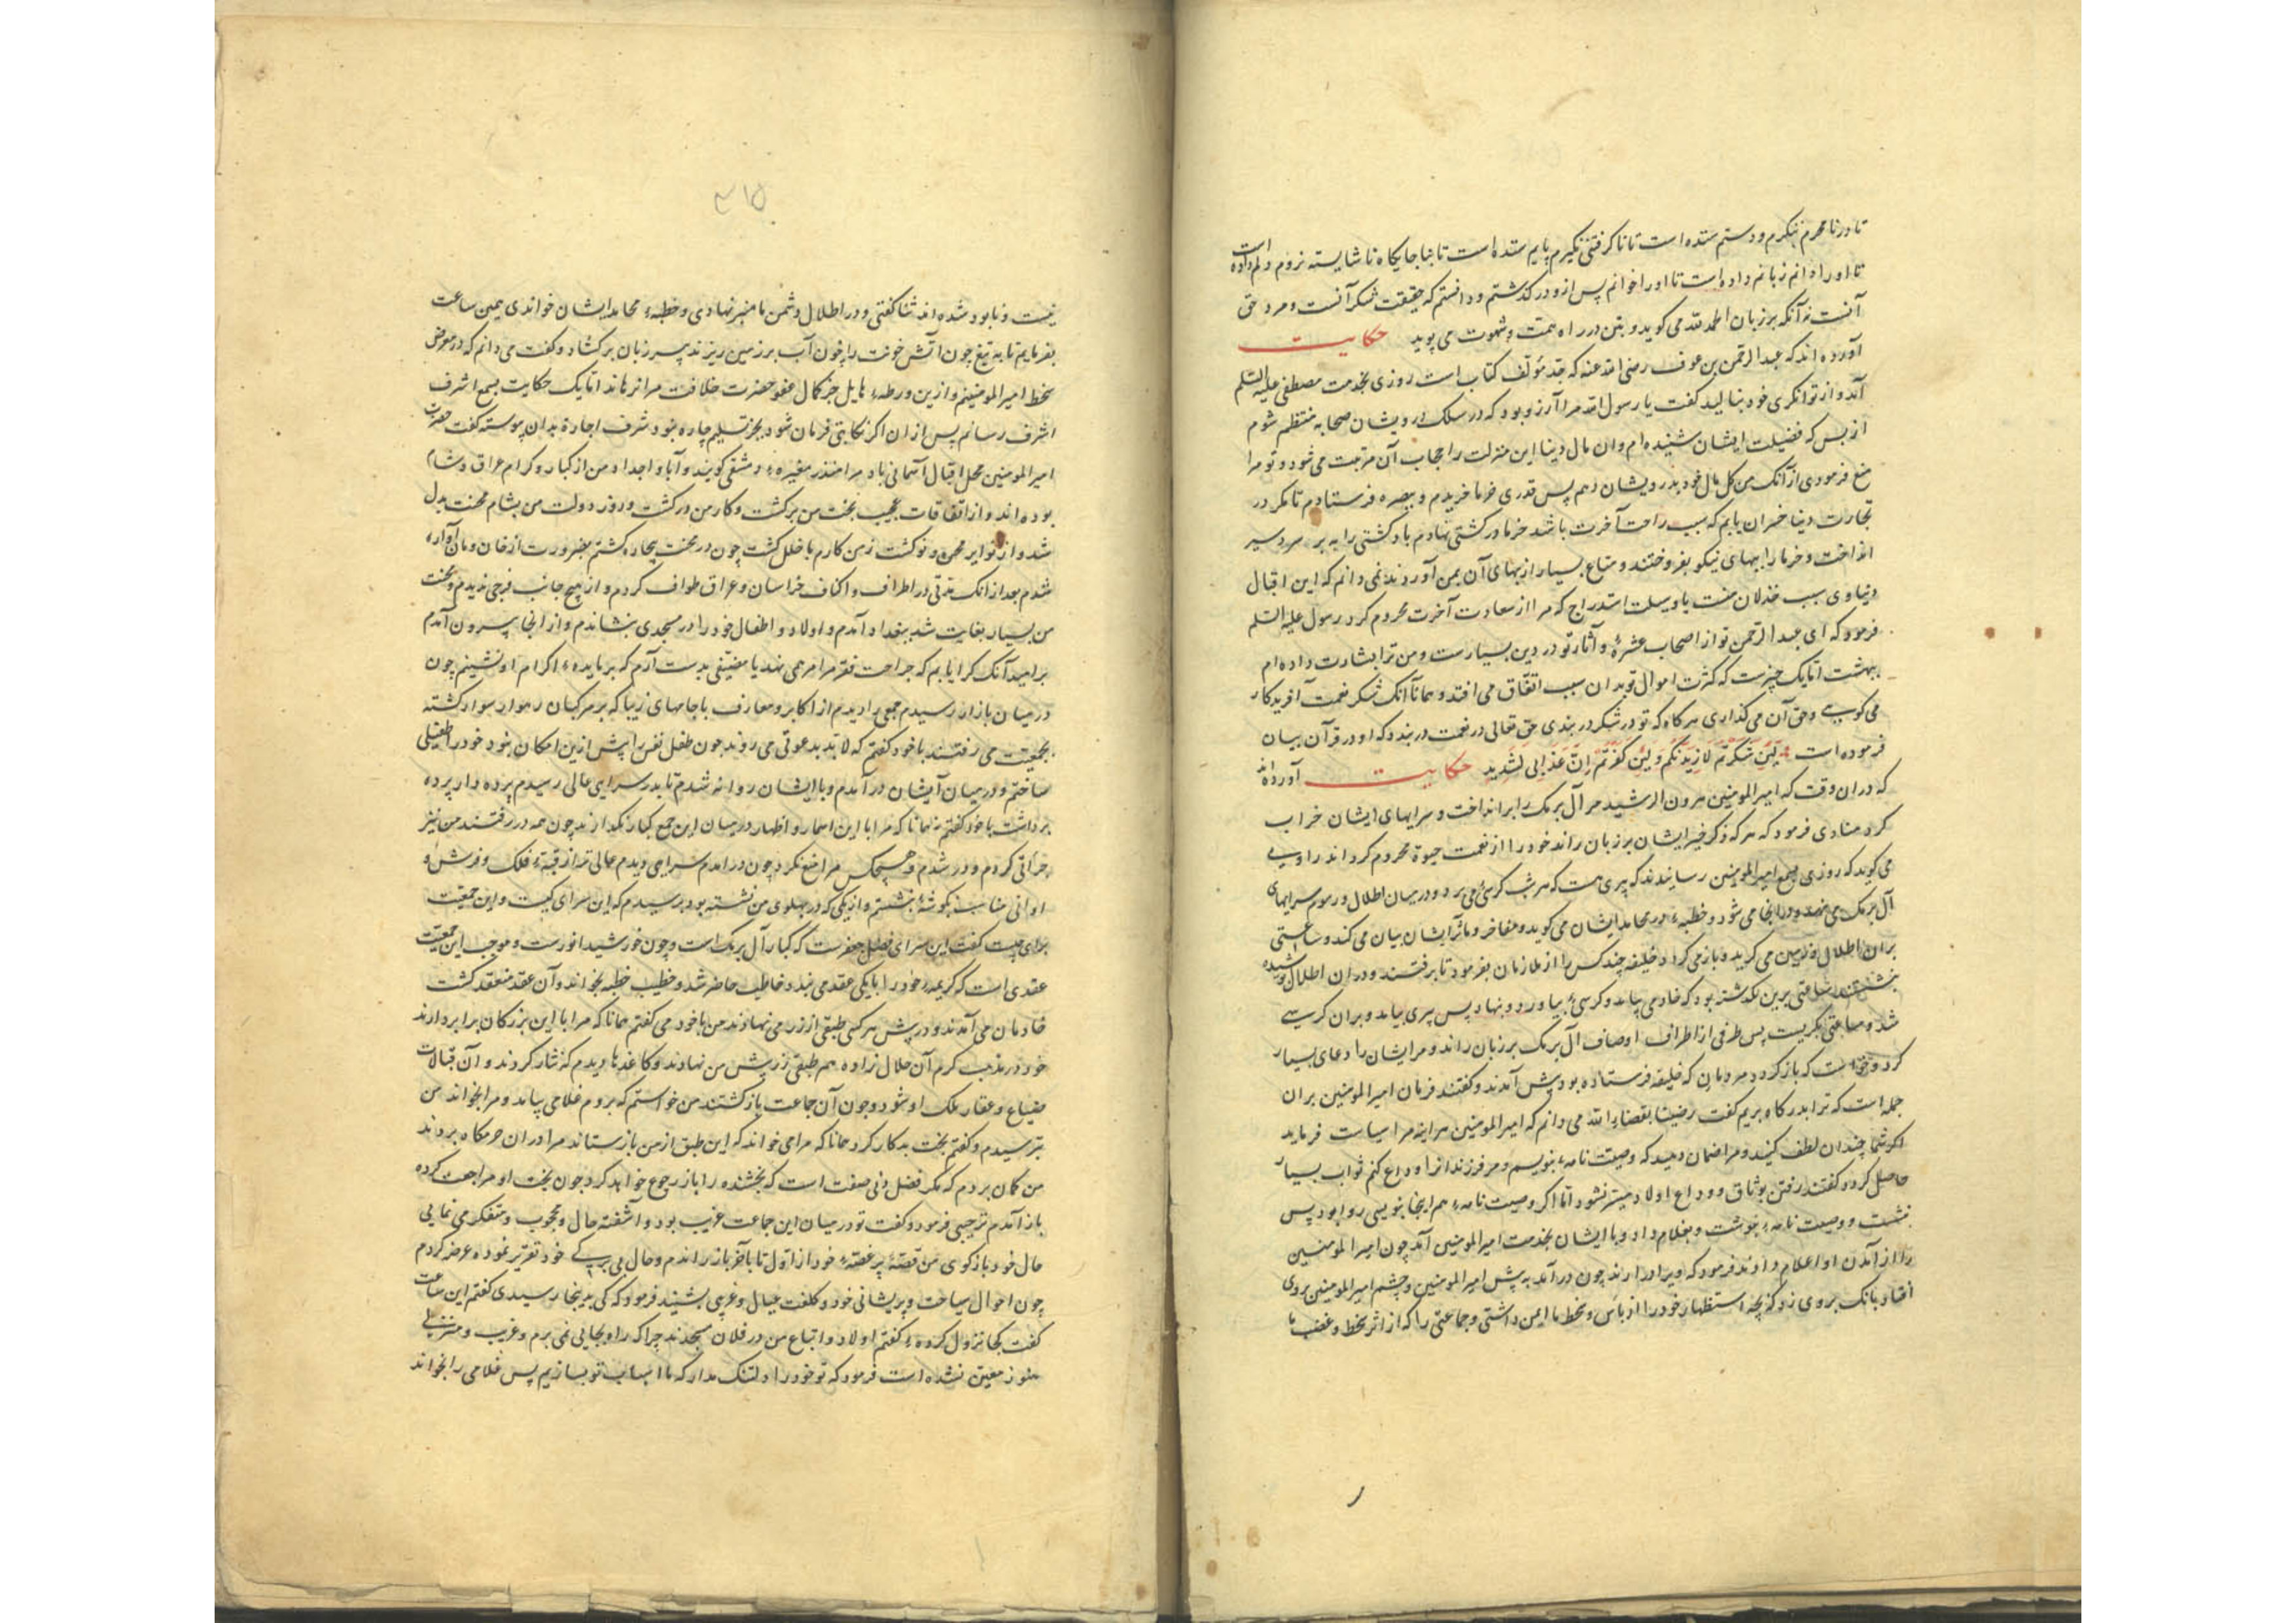 تا در نامحرم ننگرم و دستم ستده است تا ناگرفتنی نگیرم پایم ستده است تا بناجایگاه ناشایسته نروم دلم داده است
تا او را دانم زبانم داده است تا او را خوانم پس ازو در گذشتم و دانستم که حقیقت شکر آنست و مرد حق
آنست نه آنکه بر زبان الحمد لله می گوید و بتن در راه همت و شهوت می پوید حکایت
آورده اند که عبد الرحمن بن عوف رضی الله عنه که جد مؤلف کتاب است روزی بخدمت مصطفی علیه السلم
آمد و از توانگری خود بنالید گفت یا رسول الله مرا آرزو بود که در سلک درویشان صحابه منتظم شوم
از بس که فضیلت ایشان شنیده ام و ان مال دنیا این منزلت را حجاب آن مرتبت می شود و تو مرا
منع فرمودی از آنک من کل مال خود بدرویشان دهم پس قدری خرما خریدم و ببصره فرستادم تا مگر در
تجارت دنیا خسران یابم که سبب راحت آخرت باشد خرما در کشتی نهادم باد کشتی را به بر سردسیر
انداخت و خرما را ببهای نیکو بفروختند و متاع بسیار از بهای آن بمن آوردند نمی دانم که این اقبال
دنیاوی سبب خذلان منست یا وسیلت استدراج که مرا از سعادت آخرت محروم کرد رسول علیه السلم
فرمود که ای عبد الرحمن تو از اصحاب عشرهٔ و آثار تو در دین بسیارست و من ترا بشارت داده ام
ببهشت اما یک چیزست که کثرت اموال تو بدان سبب اتفاق می افتد و همانا آنک شکر نعمت آفریدگار
می گویی و حق آن می گذاری هرگاه که تو در شکر در بندی حق تعالی در نعمت در بندد که او در قرآن بیان
فرموده است لَئِن شَکَرْتُم لَأَزِیدَنَّکُم وَلَئِن کَفَرْتُم إِنَّ عَذَابِی لَشَدِید حکایت آورده اند
که دران وقت که امیر المومنین هرون الرشید مر آل برمک را برانداخت و سرایهای ایشان خراب
کرد منادی فرمود که هر که ذکر خیر ایشان بر زبان راند خود را از نعمت حیوة محروم گرداند راوی
می گوید که روزی بسمع امیر المومنین رسانیدند که پیری هست که هر شب کرسی می برد و در میان اطلال و رسوم سرایهای
آل برمک می نهد و برانجا می شود و خطبهٔ در محامد ایشان می گوید و مفاخر و مآثر ایشان بیان می کند و ساعتی
بران اطلال و دمن می گرید و باز می گردد خلیفه چند کس را از ملازمان بفرمود تا برفتند و دران اطلال پوشیده
بنشستند ساعتی برین بگذشته بود که خادمی بیامد و کرسی بیاورد و بنهاد پس پیری بیامد و بران کرسی
شد و ساعتی بگریست پس طرفی از اطراف اوصاف آل برمک بر زبان راند و مر ایشان را دعای بسیار
کرد و خواست که باز گردد مردمان که خلیفه فرستاده بود پیش آمدند و گفتند فرمان امیر المومنین بران
جمله است که ترا بدرگاه بریم گفت رضینا بقضاء الله می دانم که امیر المومنین هراینه مرا سیاست فرماید
اگر شما چندان لطف کنید و مرا ضمان دهید که وصیت نامهٔ بنویسم و مر فرزندانرا وداع کنم ثواب بسیار
حاصل گردد گفتند رفتن بوثاق و وداع اولاد میسر نشود اما اگر وصیت نامهٔ هم اینجا بنویسی روا بود پس
بنشست و وصیت نامهٔ بنوشت و بغلام داد و با ایشان بخدمت امیر المومنین آمد چون امیر المومنین
را از آمدن او اعلام دادند فرمود که ویرا درارید چون درآمد به پیش امیر المومنین و چشم امیر المومنین بروی
افتاد بانگ بروی زد که بچه استظهار خود را از باس و سخط ما ایمن داشتی و جماعتی را که از اثر سخط و غضب ما
۳۱۵
نیست و نابود شده اند ثنا گفتی و در اطلال و دمن ما منبر نهادی و خطبهٔ محامد ایشان خواندی همین ساعت
بفرمایم تا به تیغ چون آتش خونت را چون آب بر زمین ریزند پیر زبان برگشاد و گفت می دانم که در معرض
سخط امیر المومنینم و ازین ورطهٔ هایل جز کمال عفو حضرت خلافت مرا نرهاند اما یک حکایت بسمع اشرف
اشرف رسانم پس ازان اگر نکایتی فرمان شود بجز تسلیم چاره نبود شرف اجازة بدان پیوسته گفت حضرت
امیر المومنین محل اقبال آسمانی باد مرا منذر مغیرهٔ دمشقی گویند و آبا و اجداد من از کبار و کرام عراق و شام
بوده اند و از اتفاقات عجیب بخت من برگشت و کار من درگشت و روز دولت من بشام محنت بدل
شد و از نوایر محن و نوگشت زمن کارم با خلل گشت چون در محنت بیچاره گشتم بضرورت از خان و مان آواره
شدم بعد ازانک مدتی در اطراف و اکناف خراسان و عراق طواف کردم و از هیچ جانب فرجی ندیدم و محنت
من بسیار بغایت شد ببغداد آمدم و اولاد و اطفال خود را در مسجدی بنشاندم و از انجا بیرون آمدم
بر امید آنک کرا یابم که جراحت فقر مرا مرهمی نهد یا مضیفی بدست آرم که بر مایدهٔ اکرام او نشینم چون
در میان بازار رسیدم جمعی را دیدم از اکابر و معارف با جامهای زیبا که بر مرکبان رهوار سوار گشته
بجمعیت می رفتند با خود گفتم که لابد بدعوتی می روند چون طفل نفس را پیش ازین امکان نبود خود را طفیلی
ساختم و در میان آیشان درآمدم و با ایشان روانه شدم تا بدر سرای عالی رسیدم پرده دار پرده
برداشت با خود گفتم همانا که مرا با این اسمار و اطهار در میان این جمع کبار نگذارند چون همه در رفتند من نیز
جراتی کردم و در شدم و هیچکس مرا منع نکرد چون درامدم سرایی دیدم عالی تر از قبهٔ فلک و فرش و
اوانی مناسب بگوشهٔ بنشستم و از یکی که در پهلوی من نشسته بود پرسیدم که این سرای کیست و این جمعیت
برای چیست گفت این سرای فضل جعفرست که کبار آل برمک است و چون خورشید انورست و موجب این جمعیت
عقدی است که کریمهٔ خود را با یکی عقد می بندد خاطب حاضر شد و خطیب خطبه بخواند و آن عقد منعقد گشت
خادمان می آمدند و در پیش هر کسی طبقی از زر می نهادند من با خود می گفتم همانا که مرا با این بزرگان برابر ندارند
خود در مذهب کرم آن حلال زاده هم طبقی زر پیش من نهادند و کاغدها دیدم که نثار کردند و آن قبالات
ضیاع و عقار ملک او شود و چون آن جماعت بازگشتند من خواستم که بروم غلامی بیامد و مرا بخواند من
بترسیدم و گفتم بخت بد کار کرد همانا که مرا می خواند که این طبق از من باز ستاند مرا دران حرمگاه بردند
من گمان بردم که مگر فضل دنی صفت است که بخشنده را باز رجوع خواهد کرد چون بخت او مراجعت کرده
باز آمدم ترحیبی فرمود و گفت تو در میان این جماعت غریب بود و آشفته حال و محجوب و متفکر می نمایی
حال خود باز گوی من قصهٔ پر غصهٔ خود از اول تا باخر باز راندم و حال بی برگی خود تقریر نموده عرضه کردم
چون احوال سیاحت و پریشانی خود و کلفت عیال و غریبی بشنید فرمود که کی بدینجا رسیدی گفتم این ساعت
گفت کجا نزول کردهٔ گفتم اولاد و اتباع من در فلان مسجدند چرا که راه بجایی نمی برم و غریب و منزلی
هنوز معین نشده است فرمود که تو خود را دلتنگ مدار که ما اسباب تو بسازیم پس غلامی را بخواند